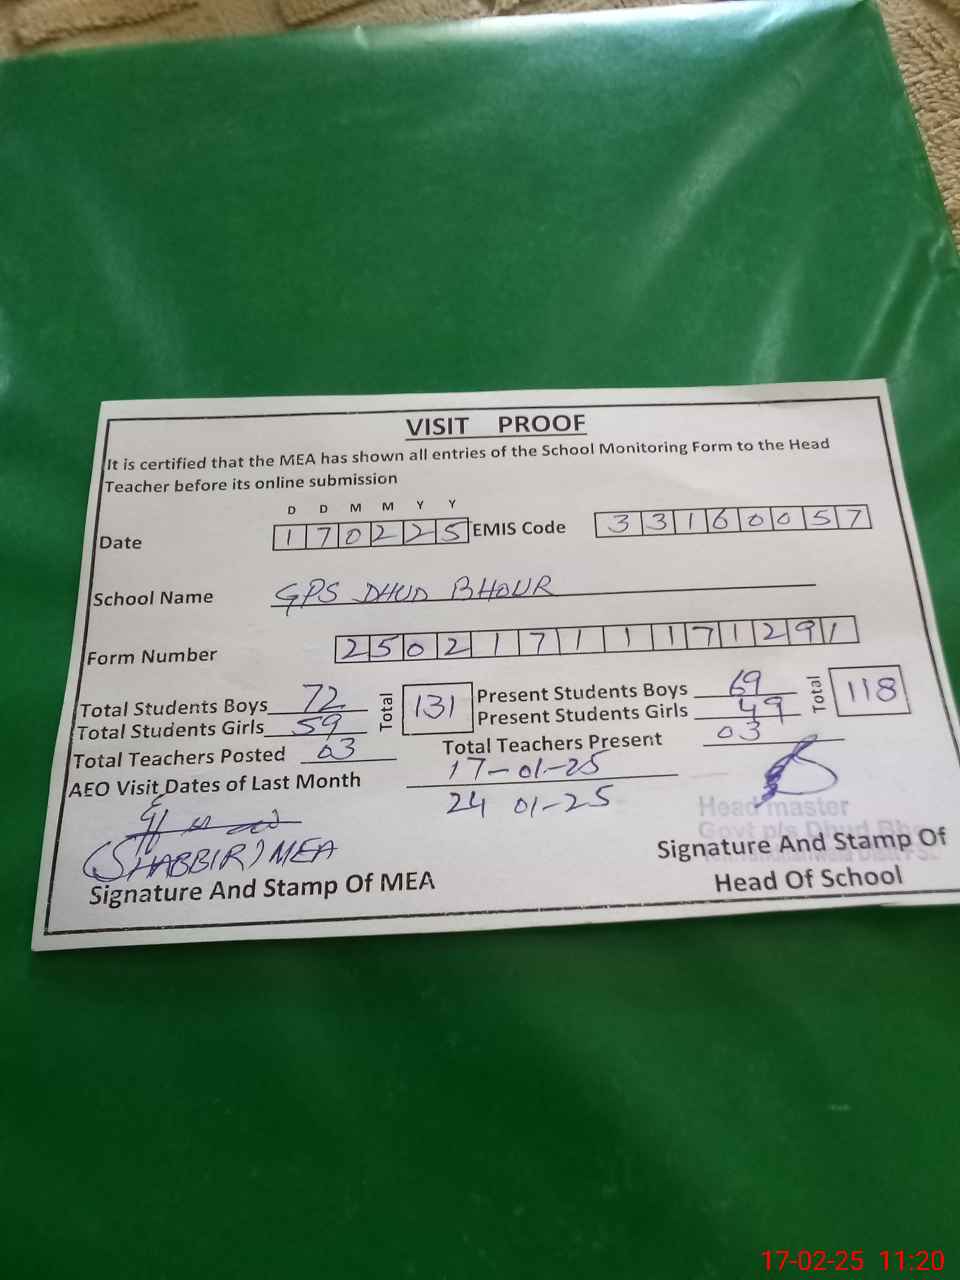 VISIT PROOF
It is certified that the MEA has shown all entries of the School Monitoring Form to the Head
Teacher before its online submission
D D M M Y Y
Date 170225 EMIS Code 33160057
School Name GPS DHUD BHOUR
Form Number 250217111171291
Total Students Boys 72 Total 131 Present Students Boys 69 Total 118
Total Students Girls 59 Present Students Girls 49
Total Teachers Posted 03 Total Teachers Present 03
AEO Visit Dates of Last Month 17-01-25
24 01-25
Head master
Govt p/s Dhud
(SHABBIR) MEA
Signature And Stamp Of MEA
Signature And Stamp Of
Head Of School
17-02-25 11:20